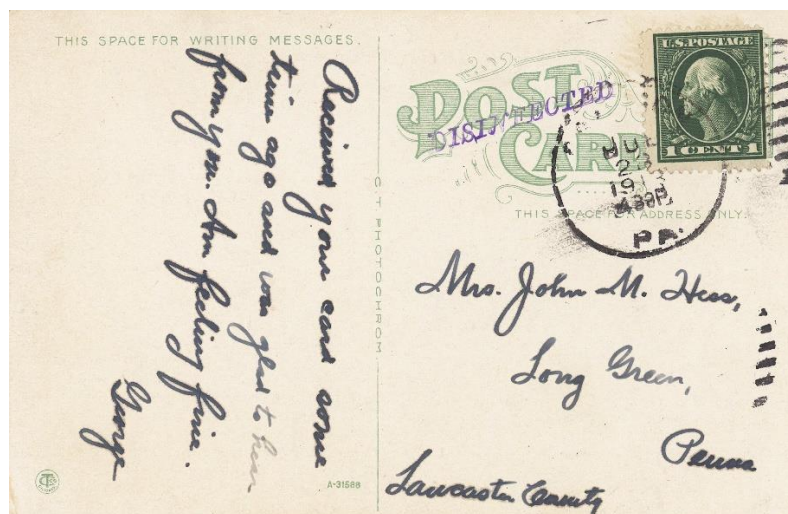 THIS SPACE FOR WRITING MESSAGES.
Received your card some
time ago and was glad to hear
from you. Am feeling fine.
George
C T PHOTOCHROM
A-31588
POST
CARD
DISINFECTED
THIS SPACE FOR ADDRESS ONLY.
U.S. POSTAGE
1 CENT 1
JUL
23
PA.
Mrs. John M. Hess,
Long Green,
Penna
Lancaster County